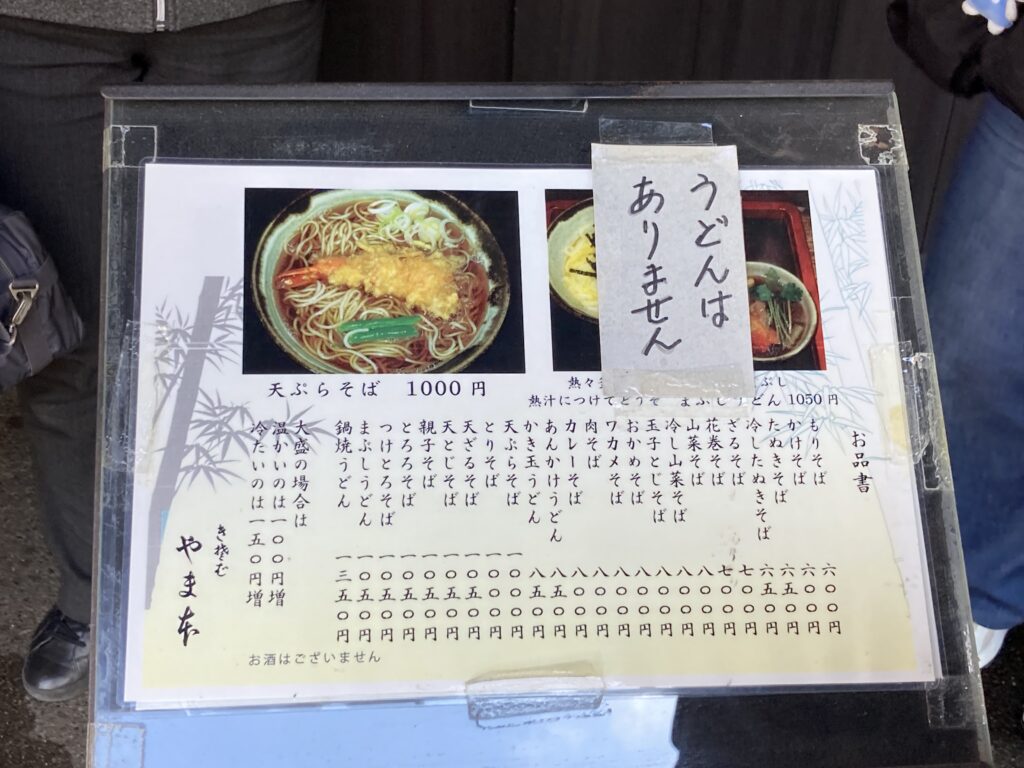 うどんは
ありません
天ぷらそば 1000円
熱々 ぶし
熱汁につけてどうぞ まぶしうどん 1050円
お品書
もりそば 六〇〇円
かけそば 六〇〇円
たぬきそば 六五〇円
冷したぬきそば 六五〇円
ざるそば 七〇〇円
花巻そば 七〇〇円
山菜そば 八〇〇円
冷し山菜そば 八〇〇円
玉子とじそば 八〇〇円
おかめそば 八〇〇円
ワカメそば 八〇〇円
肉そば 八〇〇円
カレーそば 八〇〇円
あんかけうどん 八五〇円
かき玉うどん 八五〇円
天ぷらそば 一〇〇〇円
とりそば 一〇〇〇円
天ざるそば 一〇五〇円
天とじそば 一〇五〇円
親子そば 一〇五〇円
とろろそば 一〇五〇円
つけとろそば 一〇五〇円
まぶしうどん 一〇五〇円
鍋焼うどん 一三五〇円
大盛の場合は
温かいのは一〇〇円増
冷たいのは一五〇円増
やま本
お酒はございません